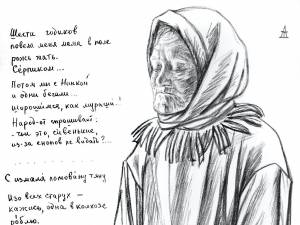 Шести годиков
повела меня мама в поле
рожь жать.
Серпиком...
Потом мы с Нинкой
и одни бегали...
шорошимся, как мураши!
Народ-от спрашивал:
- чьи это, си́веньшие,
из-за снопов не видать?..
С измала ломовину тяну
Изо всех старух -
кажись, одна в колхозе
роблю.